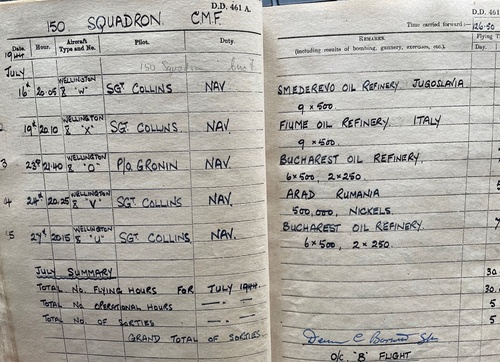 D.D. 461 A.
150 SQUADRON. C.M.F.
Date. Hour. Aircraft Type and No. Pilot. Duty.
1944
JULY
150 Squadron
16th 20.05 WELLINGTON X "W" SGT COLLINS NAV.
19th 20.10 WELLINGTON X "X" SGT COLLINS. NAV.
3 23rd 21.40 WELLINGTON X "O" P/O. GRONIN NAV.
4 24th 20.25 WELLINGTON X "V" SGT COLLINS NAV.
5 27th 20.15 WELLINGTON X "U" SGT COLLINS NAV.
JULY SUMMARY
TOTAL No. FLYING HOURS FOR JULY 1944.
TOTAL No OPERATIONAL HOURS
TOTAL No. OF SORTIES
GRAND TOTAL OF SORTIES
D.D. 461
Time carried forward:— 126.50
REMARKS
(including results of bombing, gunnery, exercises, etc.)
Flying
Day.
SMEDEREVO OIL REFINERY JUGOSLAVIA
9 x 500.
FIUME OIL REFINERY. ITALY
9 x 500.
BUCHAREST OIL REFINERY.
6x500, 2x250.
ARAD RUMANIA
500,000, NICKELS.
BUCHAREST OIL REFINERY.
6x500, 2x250.
30.
30.
5
5
O/C. "B" FLIGHT